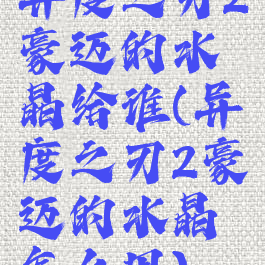 异度之刃2
豪迈的水
晶给谁(异
度之刃2豪
迈的水晶
怎么用)